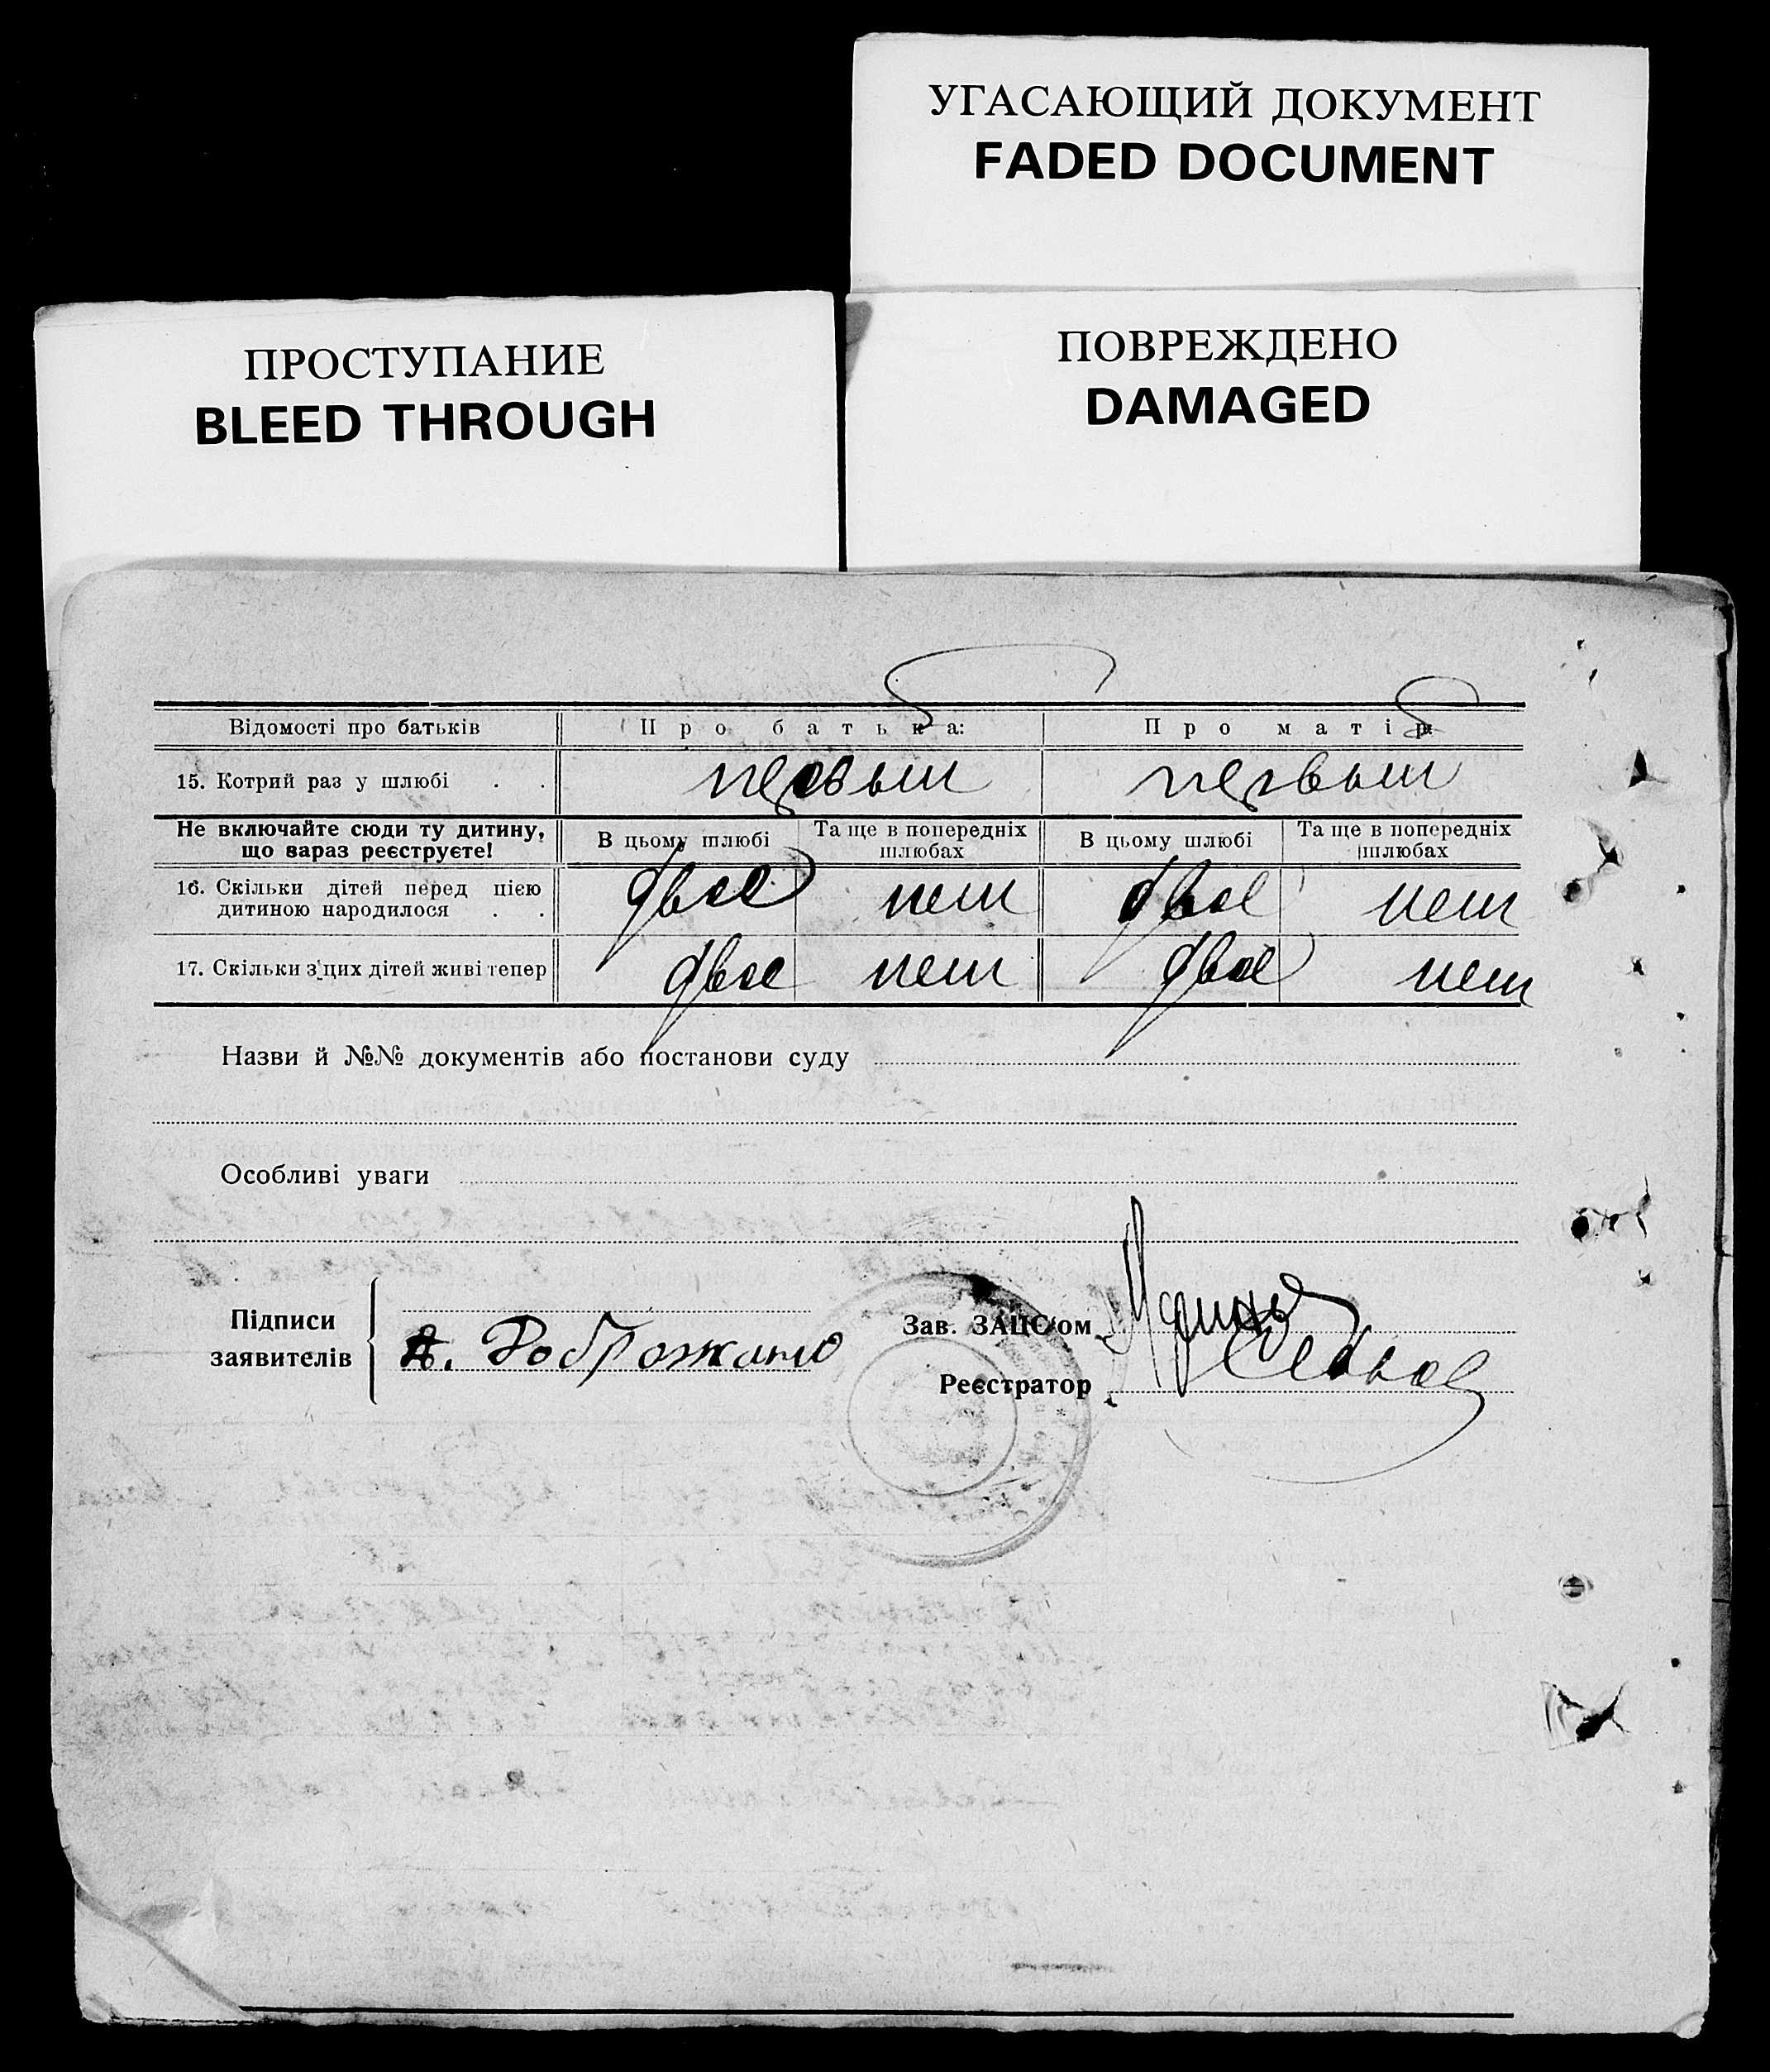 УГАСАЮЩИЙ ДОКУМЕНТ
FADED DOCUMENT
ПРОСТУПАНИЕ
BLEED THROUGH
ПОВРЕЖДЕНО
DAMAGED
Відомості про батьків Про батька: Про матір
15. Котрий раз у шлюбі . . первый первый
Не включайте сюди ту дитину, що зараз реєструєте! В цьому шлюбі Та ще в попередніх шлюбах В цьому шлюбі Та ще в попередніх шлюбах
16. Скільки дітей перед цією
дитиною народилося . . двое нет двое нет
17. Скільки з цих дітей живі тепер двое нет двое нет
Назви й №№ документів або постанови суду
Особливі уваги
Підписи
заявителів
А. Доброжан
Зав. ЗАЦС'ом
Реєстратор